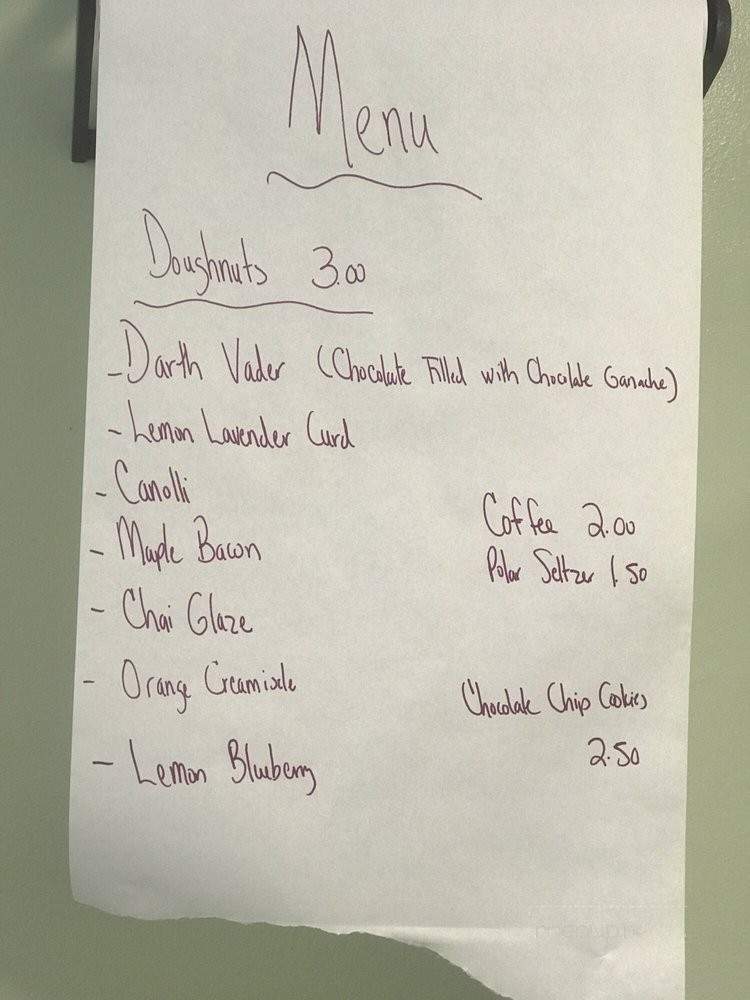 Menu
Doughnuts 3.00
- Darth Vader (Chocolate Filled with Chocolate Ganache)
- Lemon Lavender Curd
- Canolli
- Maple Bacon
- Chai Glaze
- Orange Creamiscle
- Lemon Blueberry
Coffee 2.00
Polar Seltzer 1.50
Chocolate Chip Cookies
2.50